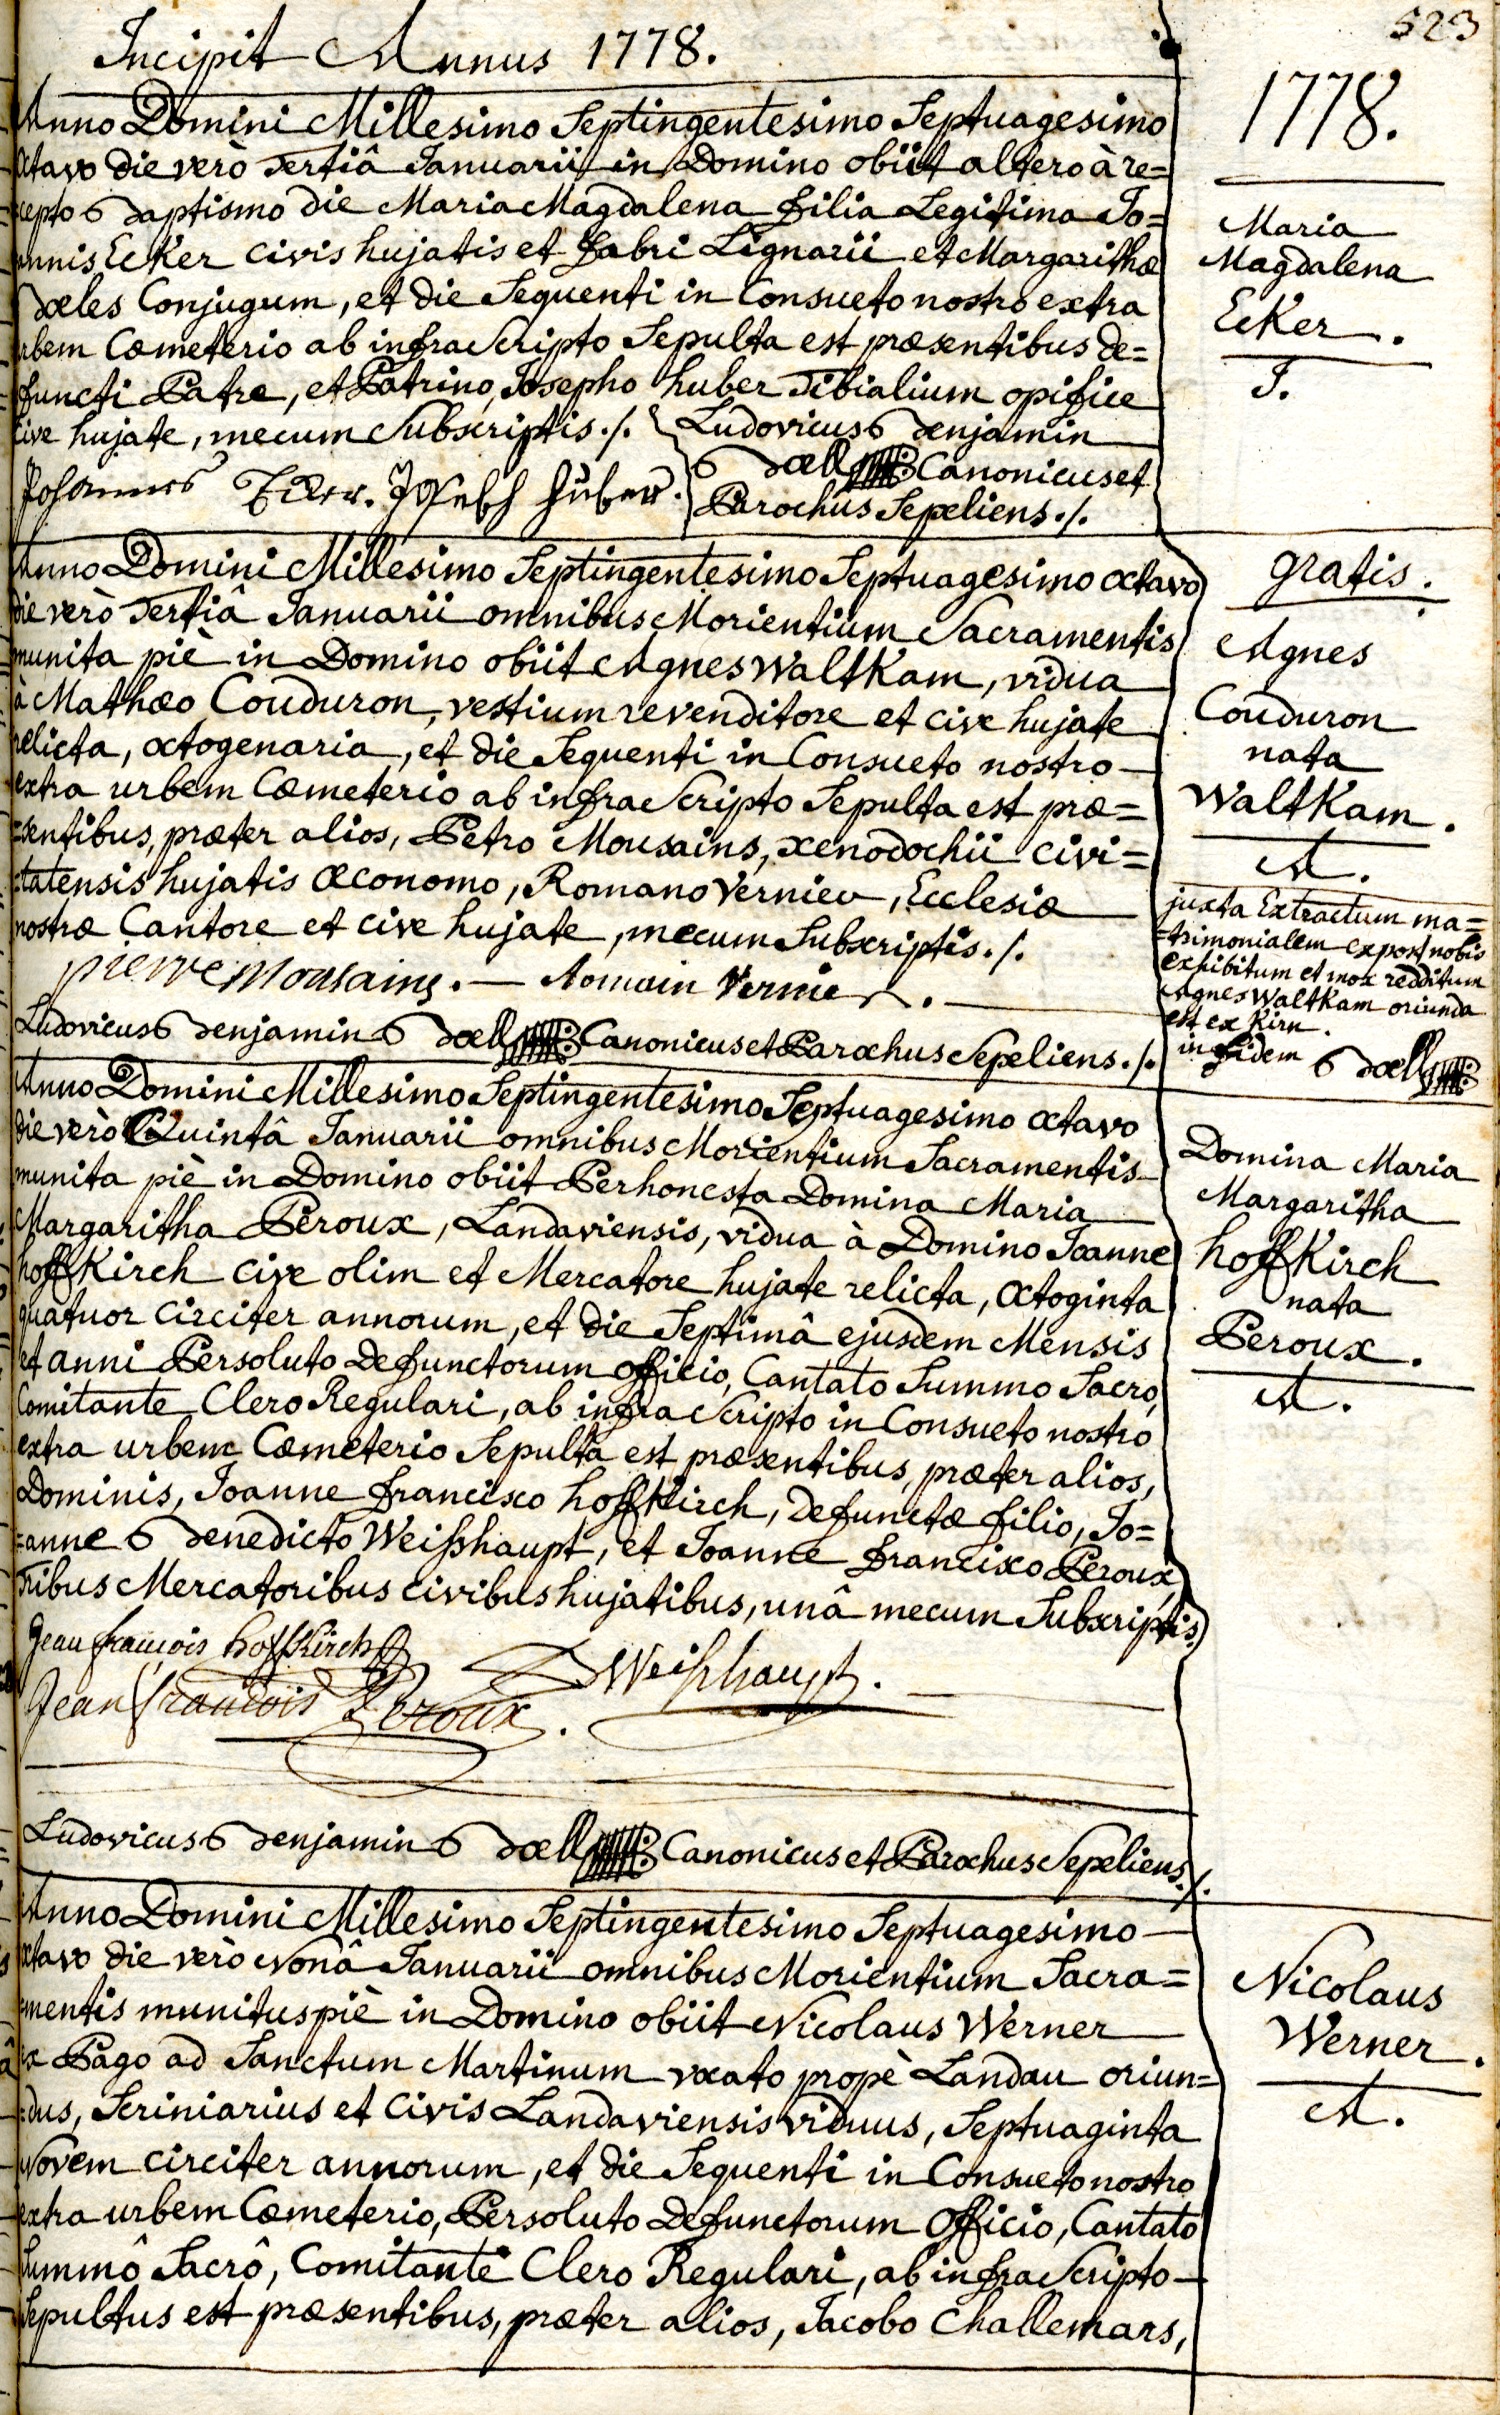 523
Incipit Annus 1778.
1778.
Anno Domini Millesimo Septingentesimo Septuagesimo
octavo die verò Tertiâ Januarii in Domino obiit altero à re=
cepto Baptismo die Maria Magdalena filia Legitima Jo=
annis Ecker civis hujatis et fabri Lignarii et Margarithæ
Bæles Conjugum, et die Sequenti in Consueto nostro extra
urbem Cœmeterio ab infra Scripto Sepulta est præsentibus de=
functi Patre, et Patrino, Josepho huber Tibialium opifice
cive hujate, mecum Subscriptis ./.
Johannes Ecker. Joseph Huber.
Ludovicus Benjamin
Bœll Canonicus et
Parochus Sepeliens ./.
Maria
Magdalena
Ecker.
J.
Anno Domini Millesimo Septingentesimo Septuagesimo octavo
die verò Tertiâ Januarii omnibus Morientium Sacramentis
munita piè in Domino obiit Agnes Waltkam, vidua
à Mathæo Couduron, vestium revenditore et cive hujate
relicta, octogenaria, et die Sequenti in Consueto nostro
extra urbem Cœmeterio ab infra Scripto Sepulta est præ=
=sentibus, præter alios, Petro Mousains, xenodochii civi=
=tatensis hujatis œconomo, Romano Vernier, Ecclesiæ
nostræ Cantore et cive hujate, mecum Subscriptis ./.
pierre Monsains. Romain Vernier.
Ludovicus Benjamin Bœll Canonicus et Parochus Sepeliens ./.
gratis.
Agnes
Couduron
nata
Waltkam.
A.
juxta Extractum ma=
=trimonialem ex post nobis
exhibitum et mox redditum
Agnes Waltkam oriunda
est ex Kirn.
in fidem Bœll
Anno Domini Millesimo Septingentesimo Septuagesimo octavo
die verò Quintâ Januarii omnibus Morientium Sacramentis
munita piè in Domino obiit Perhonesta Domina Maria
Margaritha Peroux, Landaviensis, vidua à Domino Joanne
hoffkirch cive olim et Mercatore hujate relicta, octoginta
quatuor circiter annorum, et die Septimâ ejusdem Mensis
et anni Persoluto Defunctorum officio, Cantato Summo Sacro,
Comitante Clero Regulari, ab infra Scripto in Consueto nostro
extra urbem Cœmeterio Sepulta est præsentibus, præter alios,
Dominis, Joanne francisco hoffkirch, Defunctæ filio, Jo=
=anne Benedicto Weißhaupt, et Joanne francisco Peroux,
Tribus Mercatoribus civibus hujatibus, unâ mecum Subscriptis,
Jean francois hoffkirch Weißhaupt.
Jean francois Peroux.
Ludovicus Benjamin Bœll Canonicus et Parochus Sepeliens ./.
Domina Maria
Margaritha
hoffkirch
nata
Peroux.
A.
Anno Domini Millesimo Septingentesimo Septuagesimo
octavo die verò Nonâ Januarii omnibus Morientium Sacra=
=mentis munitus piè in Domino obiit Nicolaus Werner
ex Pago ad Sanctum Martinum vocato propè Landau oriun=
=dus, Scriniarius et Civis Landaviensis viduus, Septuaginta
Novem circiter annorum, et die Sequenti in Consueto nostro
extra urbem Cœmeterio, Persoluto Defunctorum Officio, Cantato
Summô Sacrô, Comitante Clero Regulari, ab infra Scripto
Sepultus est præsentibus, præter alios, Jacobo Challemars,
Nicolaus
Werner.
A.